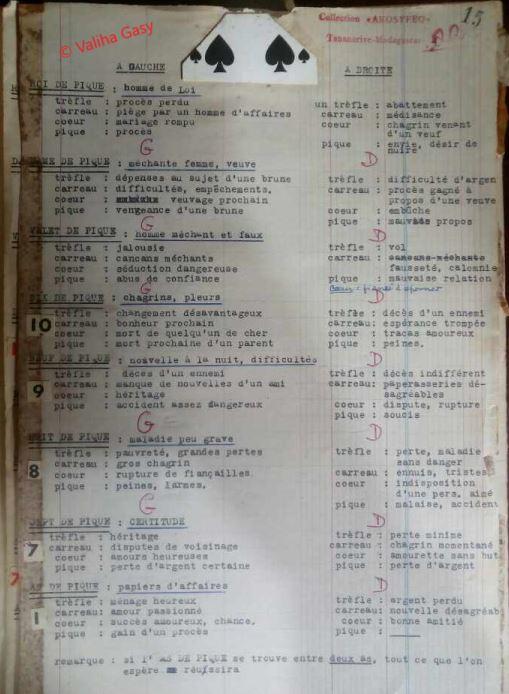 © Valiha Gasy
Collection «AKOSYFEO»
Tananarive-Madagascar
15
A GAUCHE
A DROITE
ROI DE PIQUE : homme de Loi
trèfle : procès perdu
carreau : piège par un homme d'affaires
coeur : mariage rompu
pique : procès
un trèfle : abattement
carreau : médisance
coeur : chagrin venant
d'un veuf
pique : envie, désir de
nuire
G
D
DAME DE PIQUE : méchante femme, veuve
trèfle : dépenses au sujet d'une brune
carreau : difficultés, empêchements,
coeur : veuvage prochain
pique : vengeance d'une brune
trèfle : difficulté d'argen
carreau : procès gagné à
propos d'une veuve
coeur : embûche
pique : mauvais propos
G
D
VALET DE PIQUE : homme méchant et faux
trèfle : jalousie
carreau : cancans méchants
coeur : séduction dangereuse
pique : abus de confiance
trèfle : vol
carreau : cancans méchants
fausseté, calomnie
pique : mauvaise relation
G
D
DIX DE PIQUE : chagrins, pleurs
10
trèfle : changement désavantageux
carreau : bonheur prochain
coeur : mort de quelqu'un de cher
pique : mort prochaine d'un parent
trèfle : décès d'un ennemi
carreau : espérance trompée
coeur : tracas amoureux
pique : peines.
G
D
NEUF DE PIQUE : nouvelle à la nuit, difficultés
9
trèfle : décès d'un ennemi
carreau : manque de nouvelles d'un ami
coeur : héritage
pique : accident assez dangereux
trèfle : décès indifférent
carreau: paperasseries dé-
sagréables
coeur : dispute, rupture
pique : soucis
G
D
HUIT DE PIQUE : maladie peu grave
8
trèfle : pauvreté, grandes pertes
carreau : gros chagrin
coeur : rupture de fiançailles
pique : peines, larmes.
trèfle : perte, maladie
sans danger
carreau : ennuis, tristes
coeur : indisposition
d'une pers. aimé
pique : malaise, accident
G
D
SEPT DE PIQUE : CERTITUDE
7
trèfle : héritage
carreau : disputes de voisinage
coeur : amours heureuses
pique : perte d'argent certaine
trèfle : perte minime
carreau : chagrin momentané
coeur : amourette sans but
pique : perte d'argent
D
AS DE PIQUE : papiers d'affaires
1
trèfle : ménage heureux
carreau: amour passionné
coeur : succès amoureux, chance.
pique : gain d'un procès
trèfle : argent perdu
carreau: nouvelle désagréab
coeur : bonne amitié
pique :
remarque : si l' AS DE PIQUE se trouve entre deux as, tout ce que l'on
espère réussira